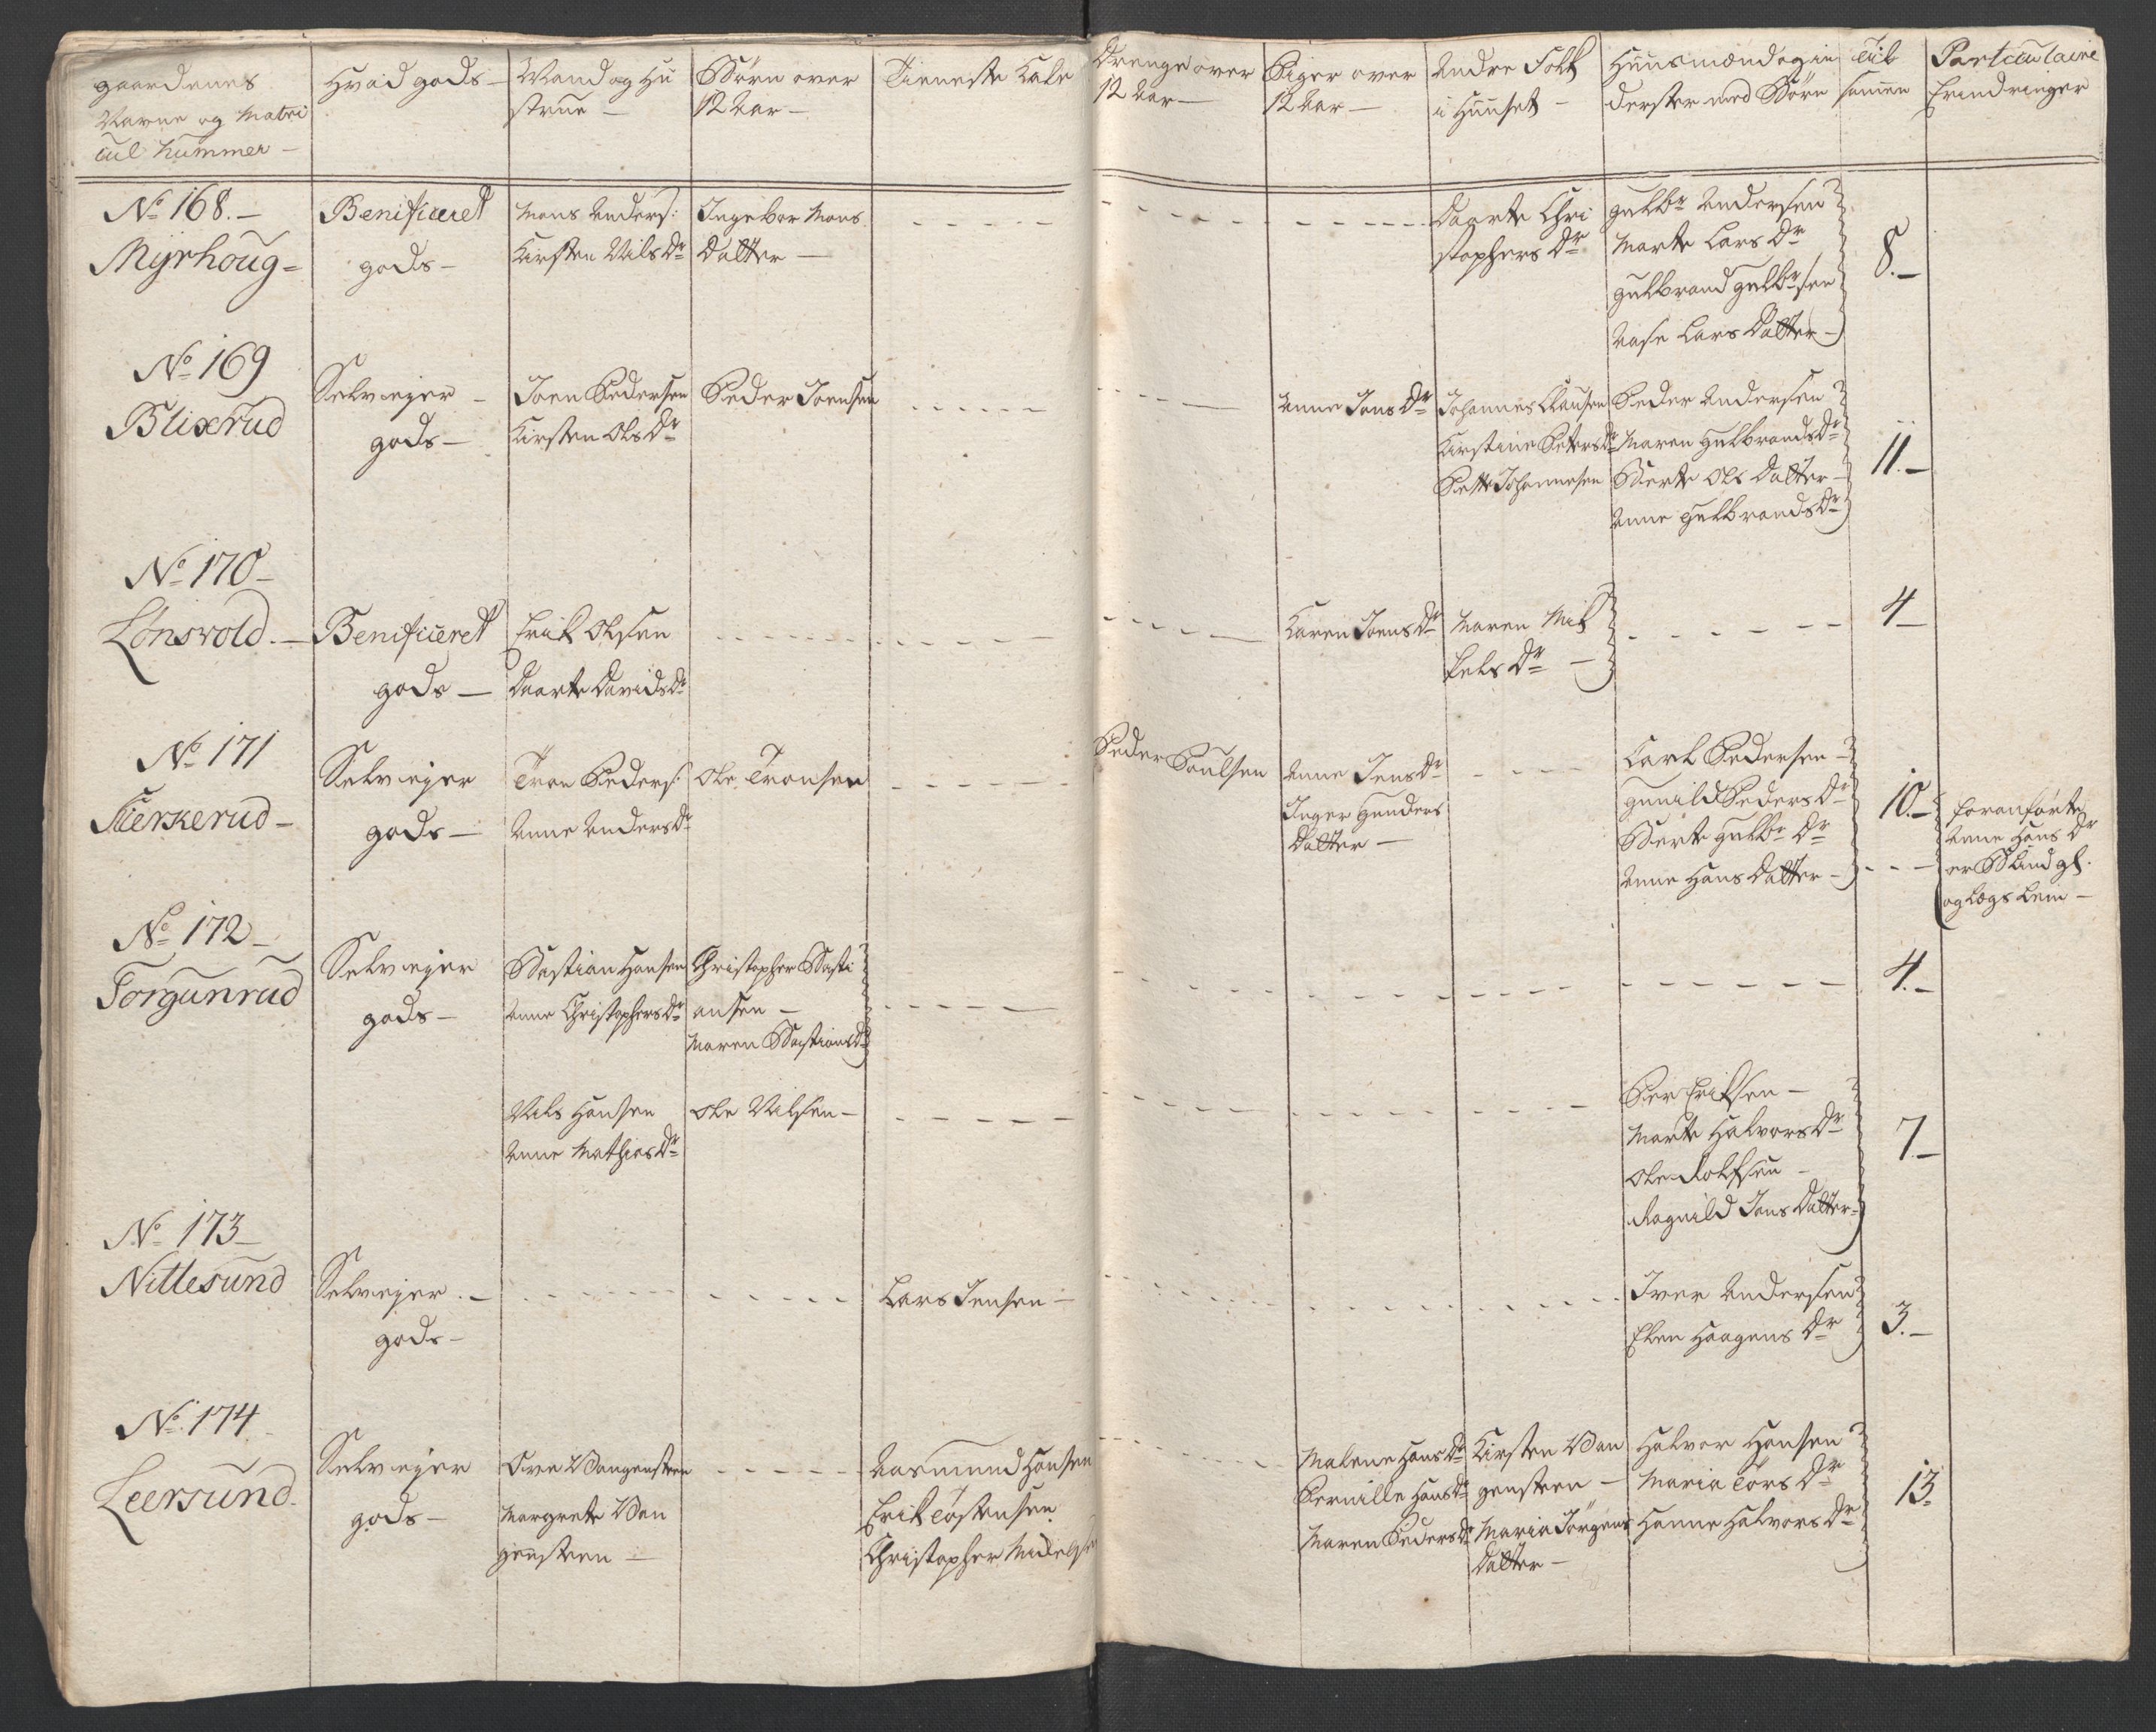 gaardenes
Navne og Matri
cul Nummer —
Hvad gods —
Mand og Hu
strue —
Børn over
12 Aar —
Tieneste Kale
Drenge over
12 Aar —
Piger over
12 Aar —
Andre Folk
i Huuset —
Huusmænd og in
derster med Børn
Til
samen
Particulaire
Erindringer
No 168. —
Myrhoug =
Benificeret
gods —
Mons Anders:
Kirsten Nils Dr
Ingebor Mons
Datter —
Daarte Chri
stophers Dr
gulbr Andersen
Marte Lars Dr
gulbrand gulbrsen
Aase Lars Datter —
8. —
No 169
Blixrud
Selveyer —
gods —
Joen Pedersen
Kirsten Ols Dr
Peder Joensen
Anne Jons Dr
Johannes Clausen
Kirstine Peters Dr
Pette Johannesen
Peder Andersen
Maren Gulbrands Dr
Berte Ols Datter —
Anne gulbrands Dr
11. —
No 170 —
Lonsvold. —
Benificeret
gods —
Erik Olsen
Daarte Davids Dr
Karen Joens Dr
Maren Mik
kels Dr —
4 —
No 171
Kierkerud —
Selveyer
gods —
Tron Peders:
Anne Anders Dr
Ole Tronsen
Peder Poulsen
Anne Jens Dr
Inger Gunders
Datter —
Carl Pedersen —
gunild Peders Dr
Berte gulbr Dr
Anne Hans Datter —
10. —
foranførte
Anne Hans Dr
er Blind gl.
og Lægs Lem —
No 172 —
Torgunrud
Selveyer
gods —
Bastian Hansen
Anne Christophers Dr
Christopher Basti
ansen —
Maren Bastians Dr
4. —
Nils Hansen
Anne Mathias Dr
Ole Nilsen —
Per Eriksen —
Marte Halvors Dr
Ole Rolfsen —
Ragnild Jons Datter —
7. —
No 173 —
Nittesund
Selveyer. —
gods —
Lars Jensen —
Iver Andersen
Elen Haagens Dr
3. —
No 174
Leersund.
Selveyer
gods —
Ove Wangensteen
Margrete Wan
gensteen —
Aasmund Hansen
Erik Tostensen
Christopher Mickelsen
Malene Hans Dr
Pernille Hans Dr
Maren Peders Dr
Kirsten Wan
gensteen —
Maria Jörgens
Datter —
Halvor Hansen
Maria Tors Dr
Hanne Halvors Dr
13.